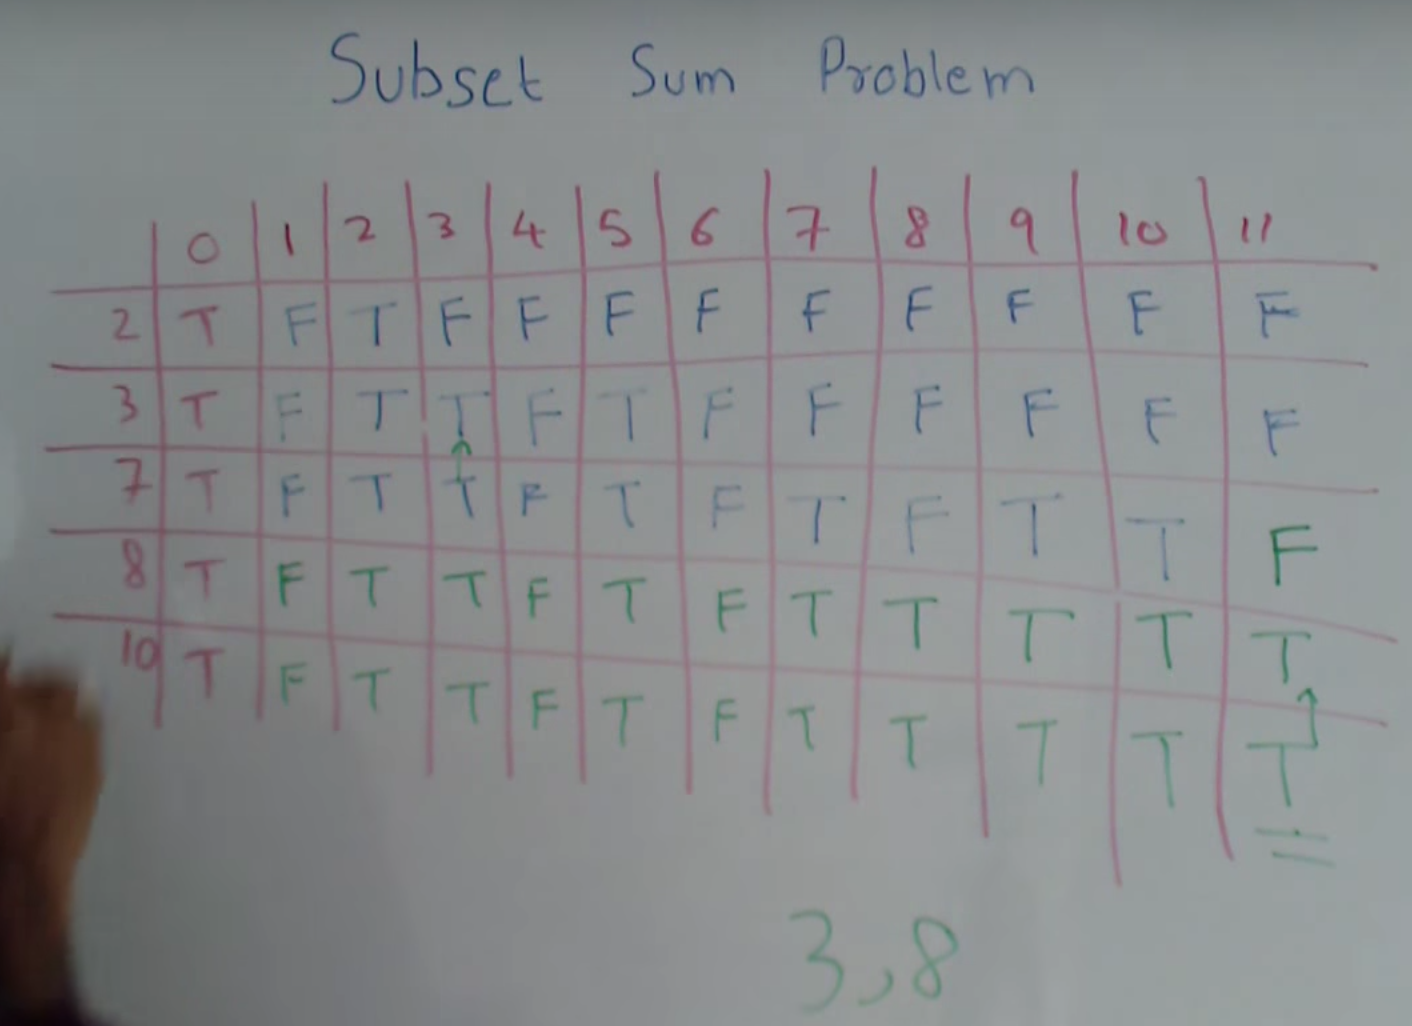 Subset Sum Problem
0 1 2 3 4 5 6 7 8 9 10 11
2 T F T F F F F F F F F F
3 T F T T F T F F F F F F
7 T F T T F T F T F T T F
8 T F T T F T F T T T T T
10 T F T T F T F T T T T T
3,8